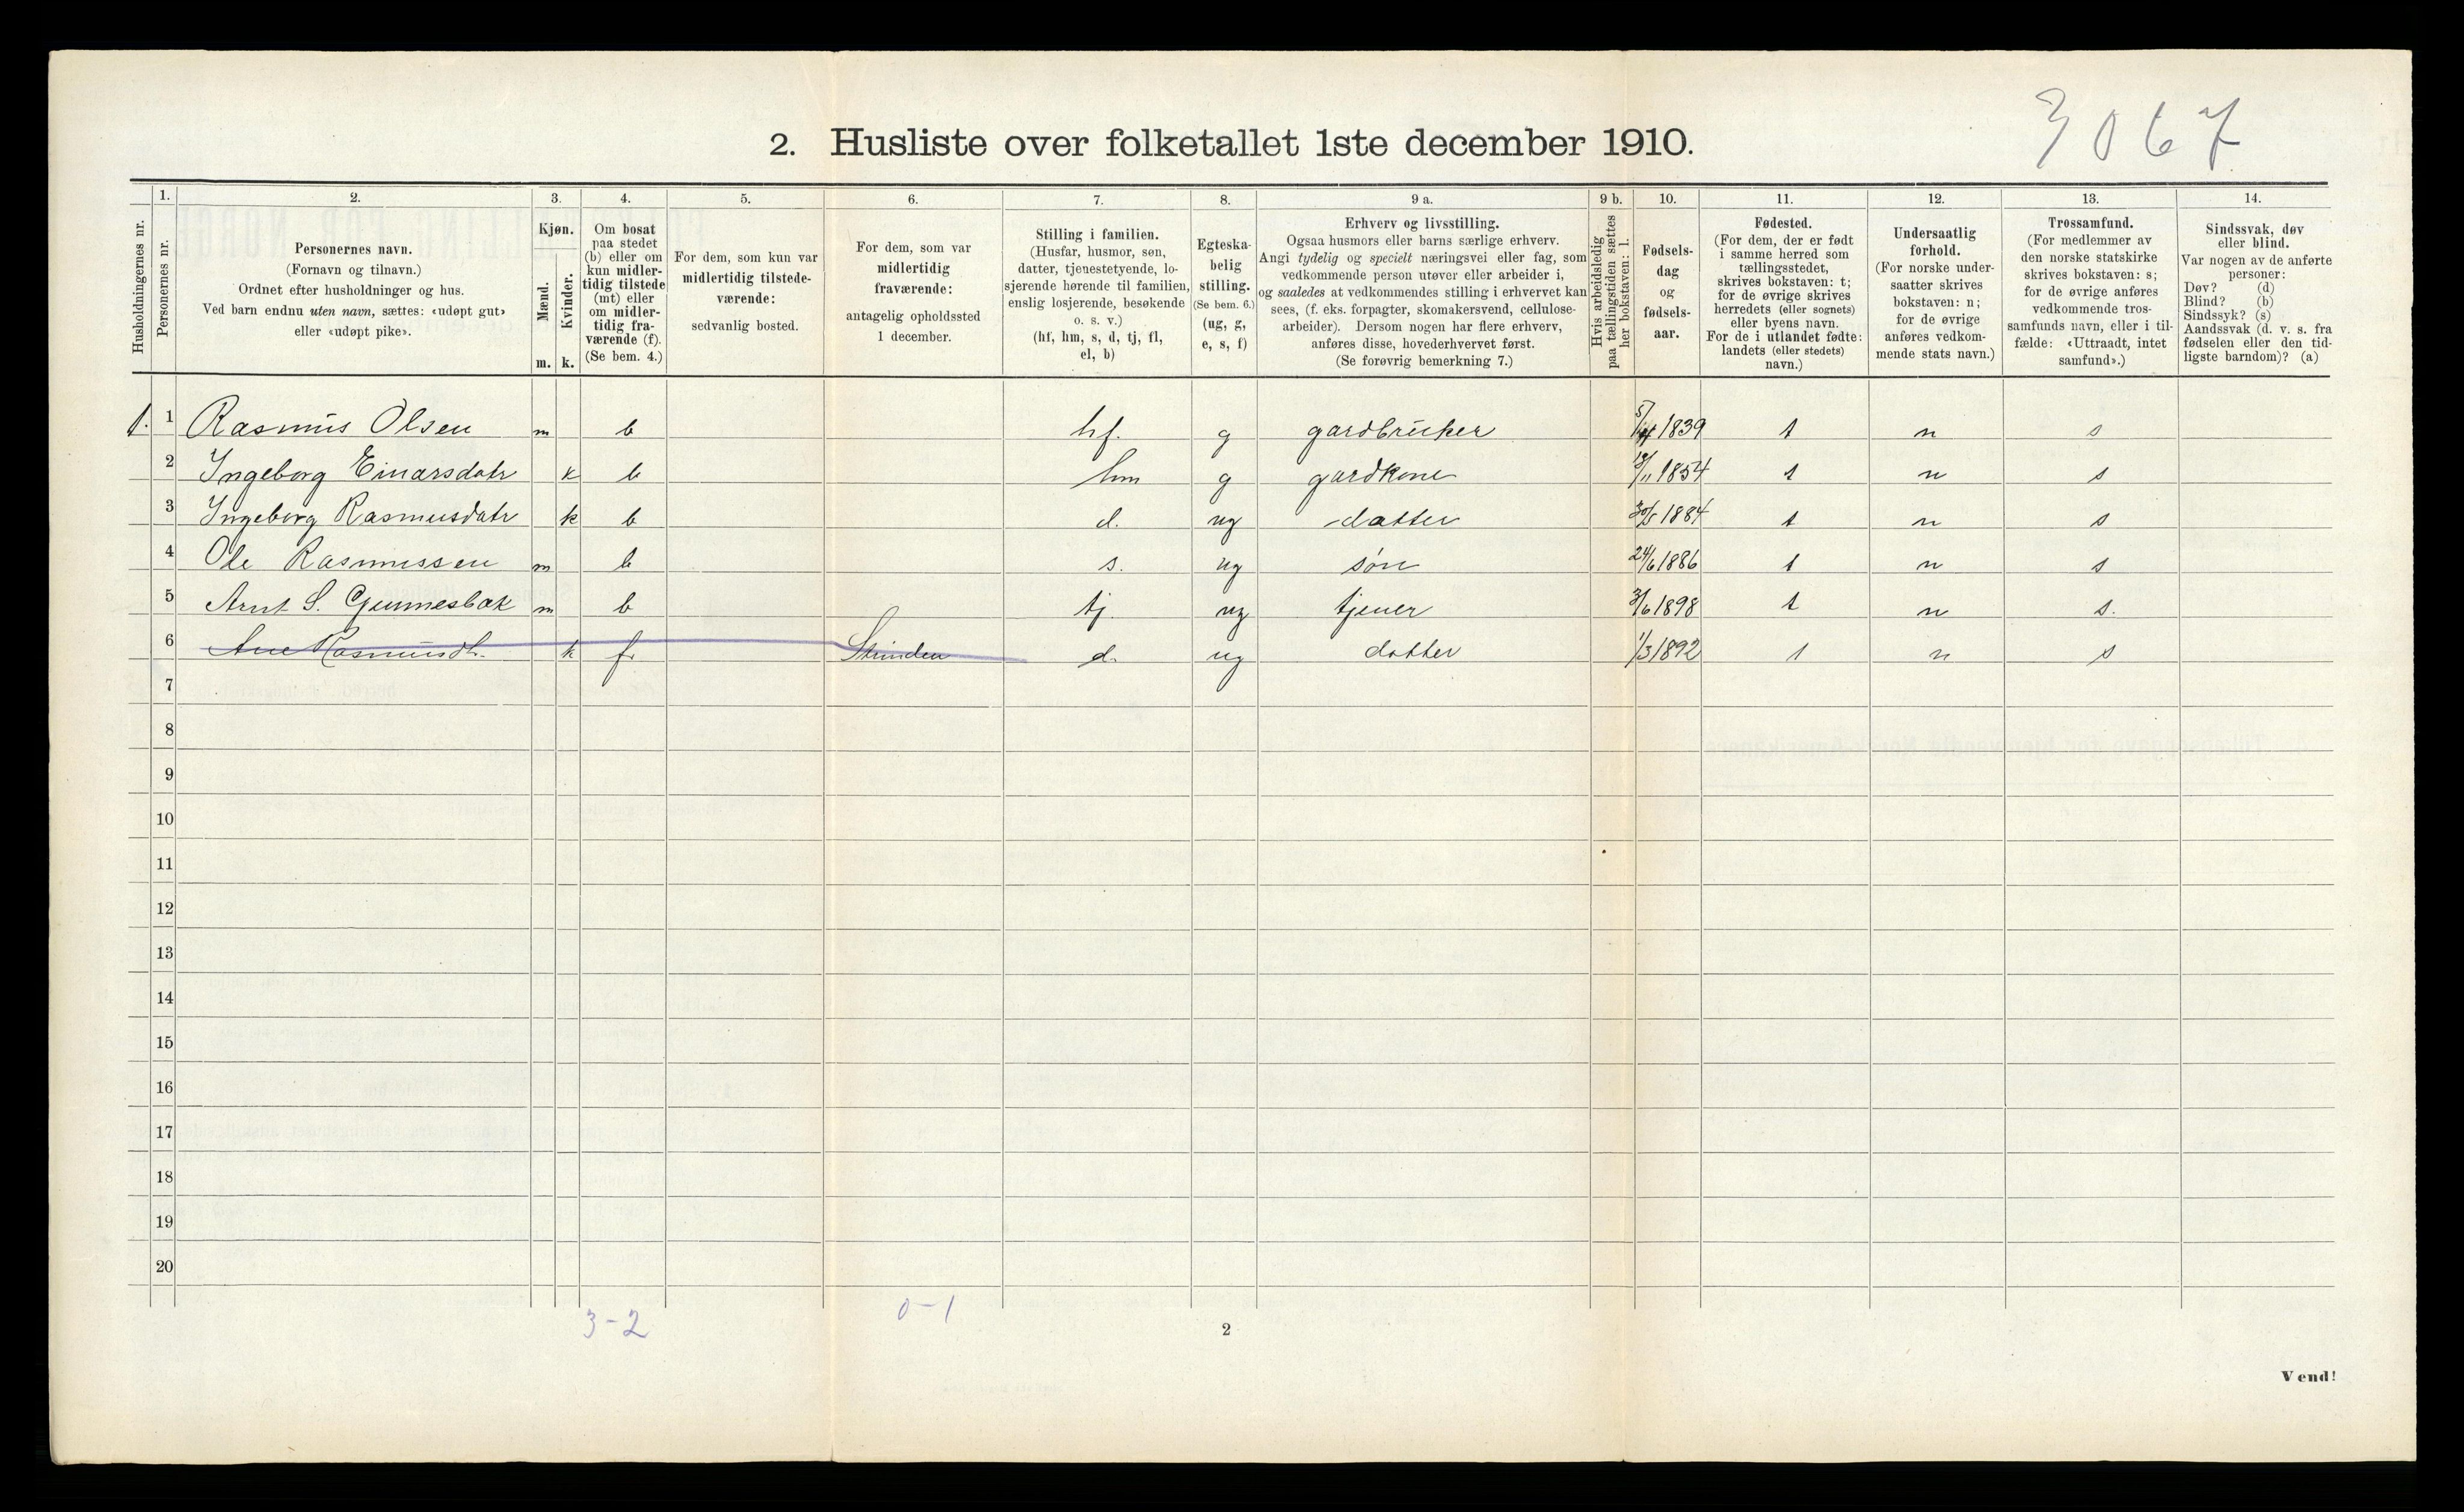 3067
2. Husliste over folketallet 1ste december 1910.
Husholdningernes nr.
1. Personernes nr.
2. Personernes navn. (Fornavn og tilnavn.) Ordnet efter husholdninger og hus. Ved barn endnu uten navn, sættes: «udøpt gut» eller «udøpt pike».
3. Kjøn. Mænd. m. Kvinder. k.
4. Om bosat paa stedet (b) eller om kun midlertidig tilstede (mt) eller om midlertidig fraværende (f). (Se bem. 4.)
5. For dem, som kun var midlertidig tilstedeværende: sedvanlig bosted.
6. For dem, som var midlertidig fraværende: antagelig opholdssted 1 december.
7. Stilling i familien. (Husfar, husmor, søn, datter, tjenestetyende, losjerende hørende til familien, enslig losjerende, besøkende o. s. v.) (hf, hm, s, d, tj, fl, el, b)
8. Egteskabelig stilling. (Se bem. 6.) (ug, g, e, s, f)
9 a. Erhverv og livsstilling. Ogsaa husmors eller barns særlige erhverv. Angi tydelig og specielt næringsvei eller fag, som vedkommende person utøver eller arbeider i, og saaledes at vedkommendes stilling i erhvervet kan sees, (f. eks. forpagter, skomakersvend, cellulosearbeider). Dersom nogen har flere erhverv, anføres disse, hovederhvervet først. (Se forøvrig bemerkning 7.)
9 b. Hvis arbeidsledig paa tællingstiden sættes her bokstaven: l.
10. Fødselsdag og fødselsaar.
11. Fødested. (For dem, der er født i samme herred som tællingsstedet, skrives bokstaven: t; for de øvrige skrives herredets (eller sognets) eller byens navn. For de i utlandet fødte: landets (eller stedets) navn.)
12. Undersaatlig forhold. (For norske undersaatter skrives bokstaven: n; for de øvrige anføres vedkommende stats navn.)
13. Trossamfund. (For medlemmer av den norske statskirke skrives bokstaven: s; for de øvrige anføres vedkommende trossamfunds navn, eller i tilfælde: «Uttraadt, intet samfund».)
14. Sindssvak, døv eller blind. Var nogen av de anførte personer: Døv? (d) Blind? (b) Sindssyk? (s) Aandssvak (d. v. s. fra fødselen eller den tidligste barndom)? (a)
1. 1 Rasmus Olsen m b hf. g gardbruker 1839 t n s
2 Ingeborg Einarsdatr k b hm g gardkone 18/11 1854 t n s
3 Ingeborg Rasmusdatr k b d. ug datter 30/5 1884 t n s
4 Ole Rasmussen m b s. ug søn 24/6 1886 t n s
5 Arnt S. Gunnesbak m b tj. ug tjener 3/6 1898 t n s.
6 Ane Rasmusdt. k f. Strinden d. ug datter 1/3 1892 t n s
7
8
9
10
11
12
13
14
15
16
17
18
19
20
3-2 0-1
2
Vend!